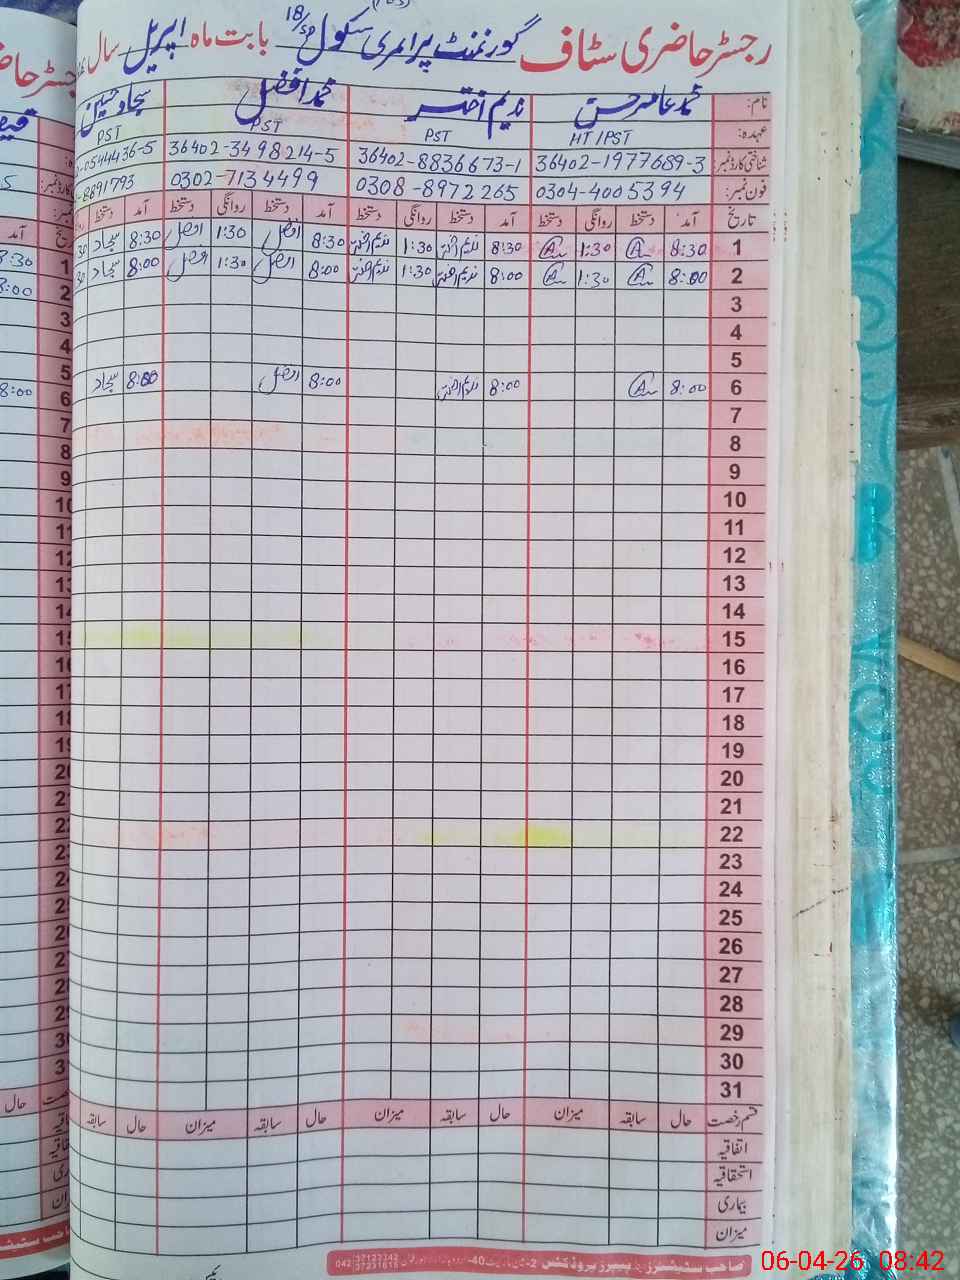 رجسٹر حاضری سٹاف گورنمنٹ پرائمری سکول 18/SP بابت ماہ اپریل سال
نام: محمد عامر حسن ندیم اختر محمد افضل سجاد حسین
عہدہ: HT/PST PST PST PST
شناختی کارڈ نمبر: 36402-1977689-3 36402-8836673-1 36402-3498214-5 0544436-5
فون نمبر: 0304-4005394 0308-8972265 0302-7134499 8891793
تاریخ آمد دستخط روانگی دستخط آمد دستخط روانگی دستخط آمد دستخط روانگی دستخط آمد دستخط
1 8:30 1:30 8:30 ندیم اختر 1:30 ندیم اختر 8:30 افضل 1:30 افضل 8:30 سجاد
2 8:00 1:30 8:00 ندیم اختر 1:30 ندیم اختر 8:00 افضل 1:30 افضل 8:00 سجاد
3
4
5
6 8:00 8:00 ندیم اختر 8:00 افضل 8:00 سجاد
7
8
9
10
11
12
13
14
15
16
17
18
19
20
21
22
23
24
25
26
27
28
29
30
31
قسم رخصت حال سابقہ میزان حال سابقہ میزان حال سابقہ میزان حال سابقہ
اتفاقیہ
استحقاقیہ
بیماری
میزان
صاحب سٹیشنرز پیپرز پروڈکشن 042 37122342 37231616
06-04-26 08:42